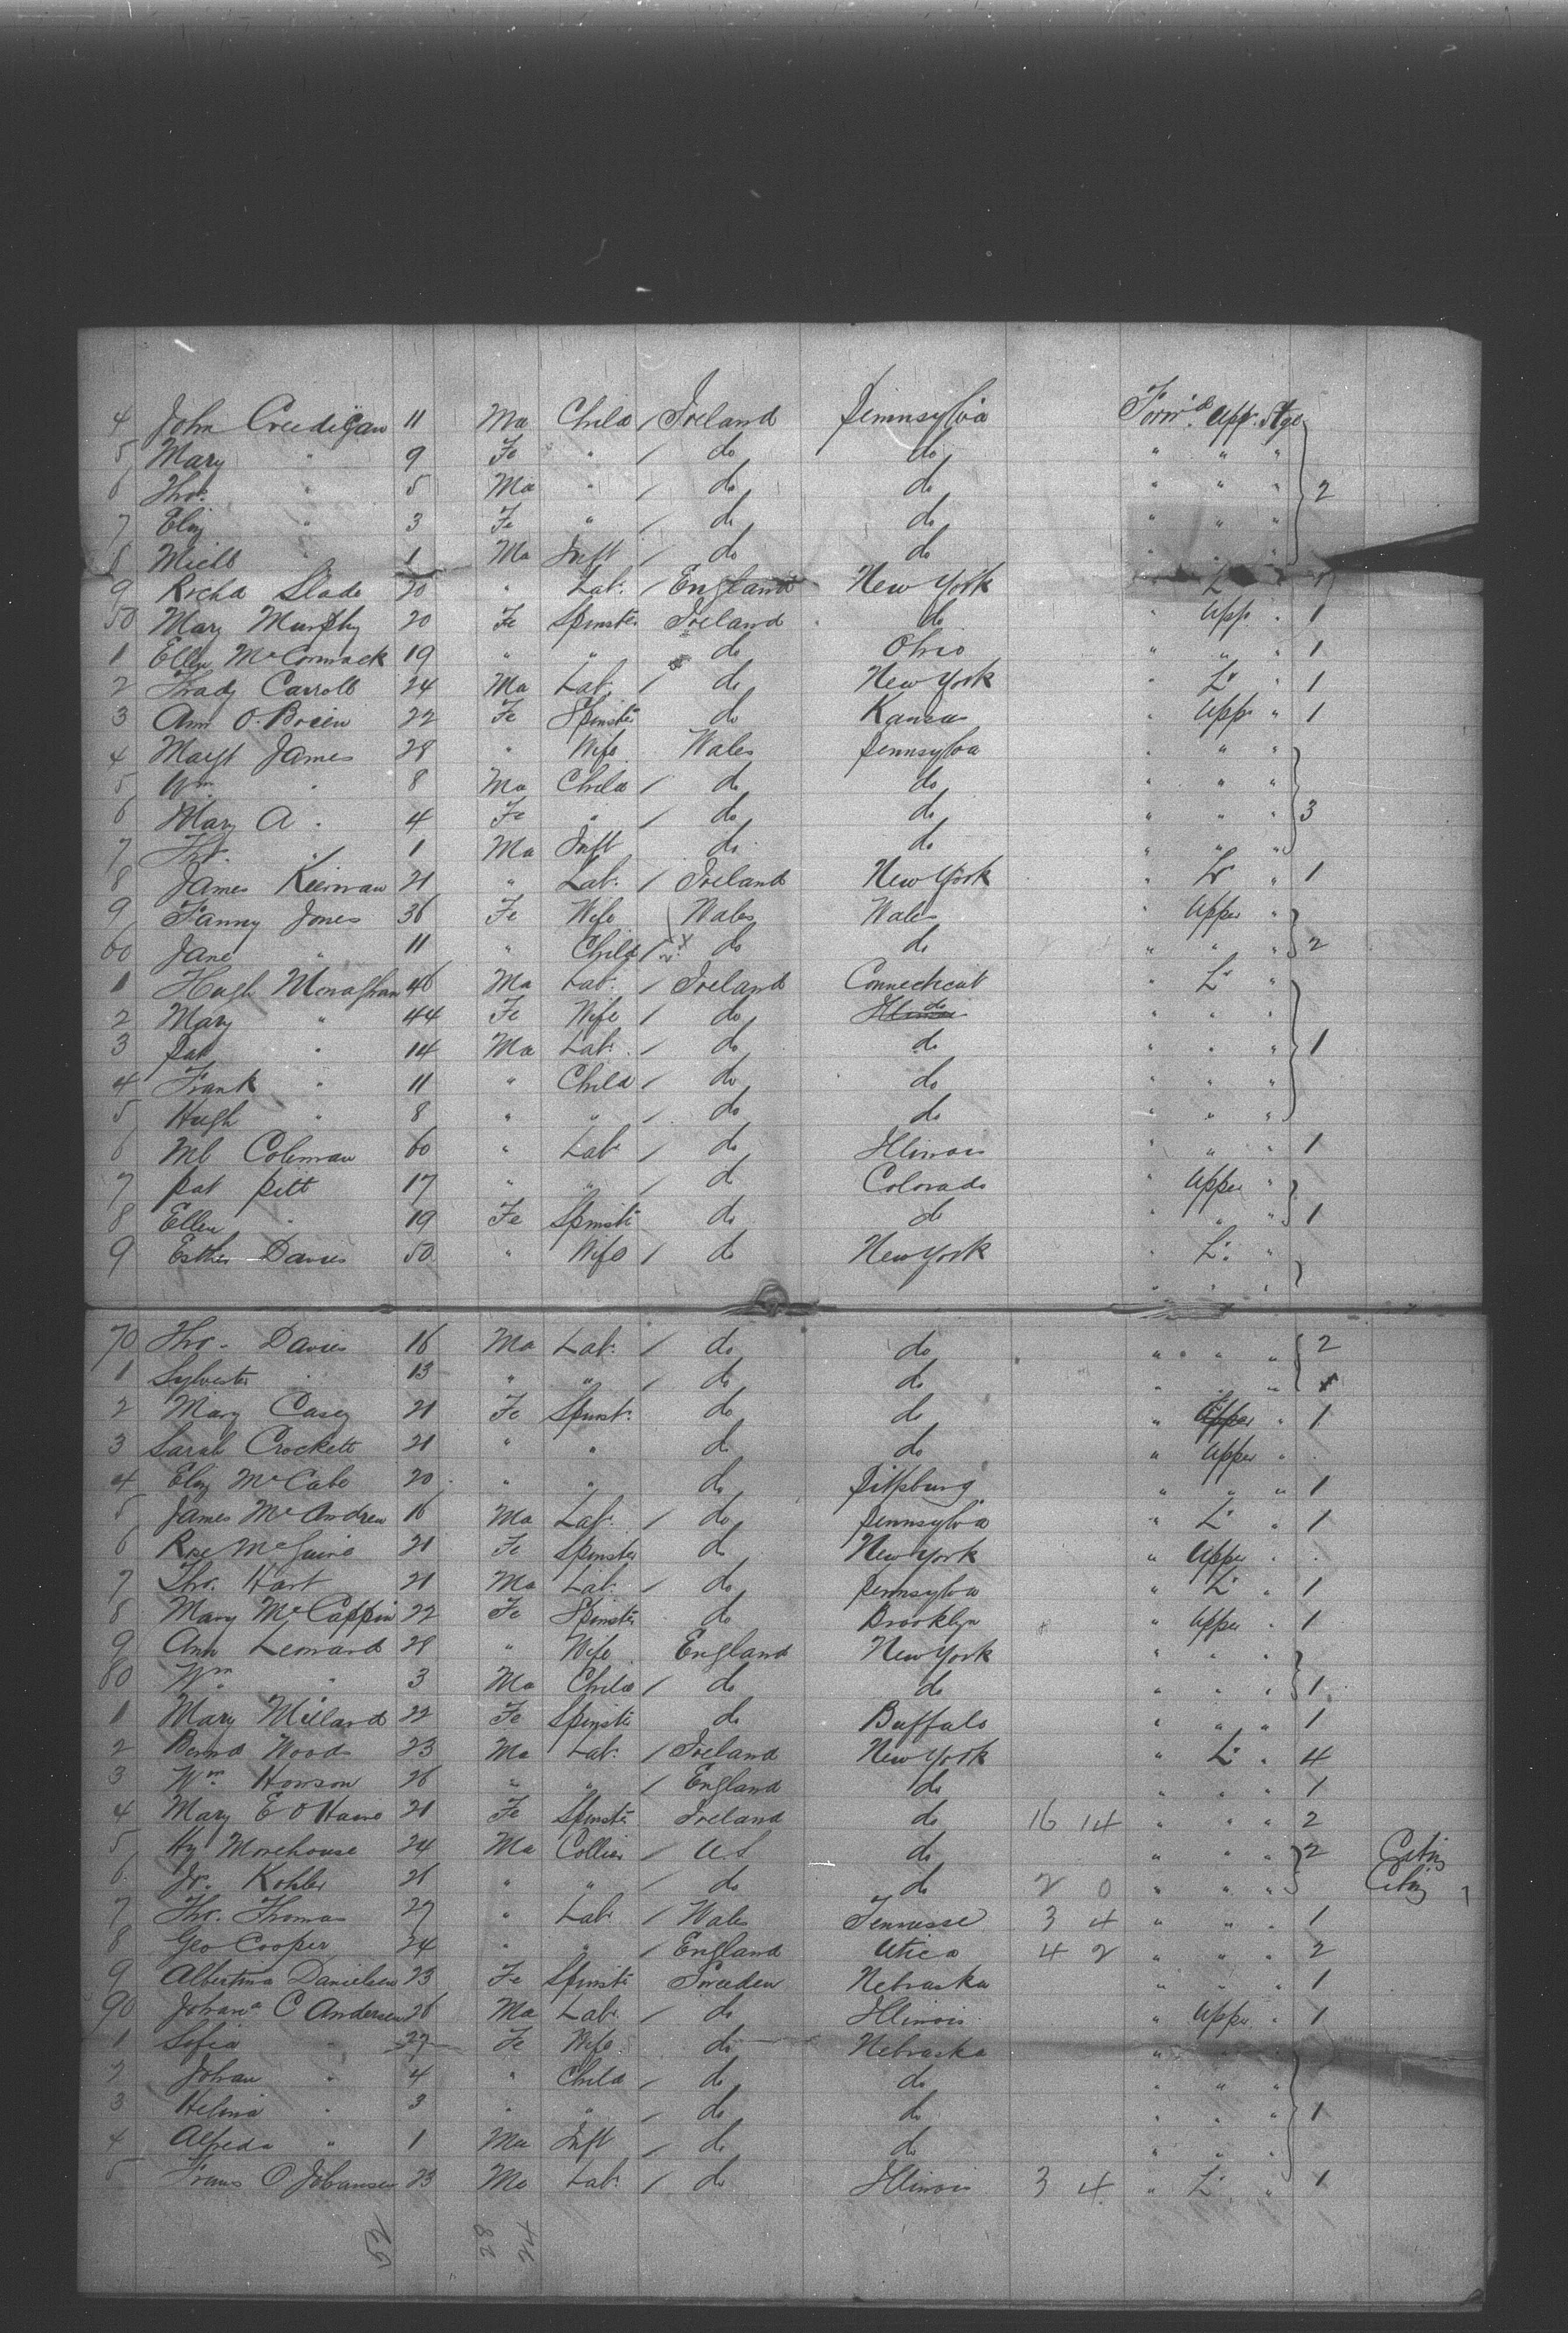 4 John Creedigan 11 Ma Child / Ireland Pennsylva Forwd. Upp. Stge
5 Mary " 9 Fe " / do do " " "
6 Tho. " 5 Ma " / do do " " " 2
7 Eliz " 3 Fe " / do do " " "
8 Michl " 1 Ma Inft / do do " " "
9 Richd Slade 20 " Lab. / England New York " L. "
50 Mary Murphy 20 Fe Spinster Ireland do " Upp. " 1
1 Ellen McCormack 19 " " do Ohio " " " 1
2 Thady Carroll 24 Ma Lab. / do New York " Lr " 1
3 Ann O.Brien 22 Fe Spinster do Kansas " Upp " 1
4 Margt James 28 " Wife Wales Pennsylva " " "
5 Wm. " 8 Ma Child / do do " " "
6 Mary A " 4 Fe " / do do " " " 3
7 Tho. " 1 Ma Inft do do " " "
8 James Keernan 21 " Lab. / Ireland New York " Lr " 1
9 Fanny Jones 36 Fe Wife Wales Wales " Upper "
60 Jane " 11 " Child / do do " " " 2
1 Hugh Monaghan 46 Ma Lab. / Ireland Connecticut " Lr "
2 Mary " 44 Fe Wife / do do " " "
3 Pat " 14 Ma Lab. / do do " " " 1
4 Frank " 11 " Child / do do " " "
5 Hugh " 8 " " / do do " " "
6 Ml Coleman 60 " Lab / do Illinois " " " 1
7 Pat Pitt 17 " " / do Colorado " Upper "
8 Ellen " 19 Fe Spinstr do do " " " 1
9 Esther Davies 50 " Wife / do New York " Lr. "
70 Tho. Davies 16 Ma Lab. / do do " " " 2
1 Sylvester " 13 " " / do do " " "
2 Mary Casey 21 Fe Spinst. do do " Upper " 1
3 Sarah Crockett 21 " " do do " Upper "
4 Eliz McCabe 20 " " do Pittsburg " " " 1
5 James McAndrew 16 Ma Lab. / do Pennsylva " Lr " 1
6 Rose McGuire 21 Fe Spinster do New York " Upper "
7 Tho. Hart 21 Ma Lab. / do Pennsylva " Lr " 1
8 Mary McCappin 22 Fe Spinster do Brooklyn " Upper " 1
9 Ann Leonard 28 " Wife England New York " " "
80 Wm " 3 Ma Child / do do " " " 1
1 Mary Millard 22 Fe Spinstr do Buffalo " " " 1
2 Bernd Woods 23 Ma Lab. / Ireland New York " Lr " 4
3 Wm. Howson 26 " " / England do " " " 1
4 Mary E O Hare 21 Fe Spinstr Ireland do 16 14 " " " 2
5 Hy Morehouse 24 Ma Collier / U.S do " " " 2 Citiz
6 Jo. Kohler 26 " " / do do 2 0 " " " Citiz
7 Tho. Thomas 27 " Lab / Wales Tennesse 3 4 " " " 1
8 Geo Cooper 24 " " / England Utica 4 2 " " " 2
9 Albertina Danielsen 23 Fe Spinstr Sweeden Nebraska " " " 1
90 Johana C Andersen 26 Ma Lab. / do Illinois " Upper " 1
1 Sofia " 27 Fe Wife do Nebraska " " "
2 Johan " 4 " Child / do do " " "
3 Helina " 3 " " / do do " " " 1
4 Alfreda " 1 Ma Inft / do do " " "
5 Frans O Johansen 23 Ma Lab. / do Illinois 3 4 " L. " 1
52 28 24